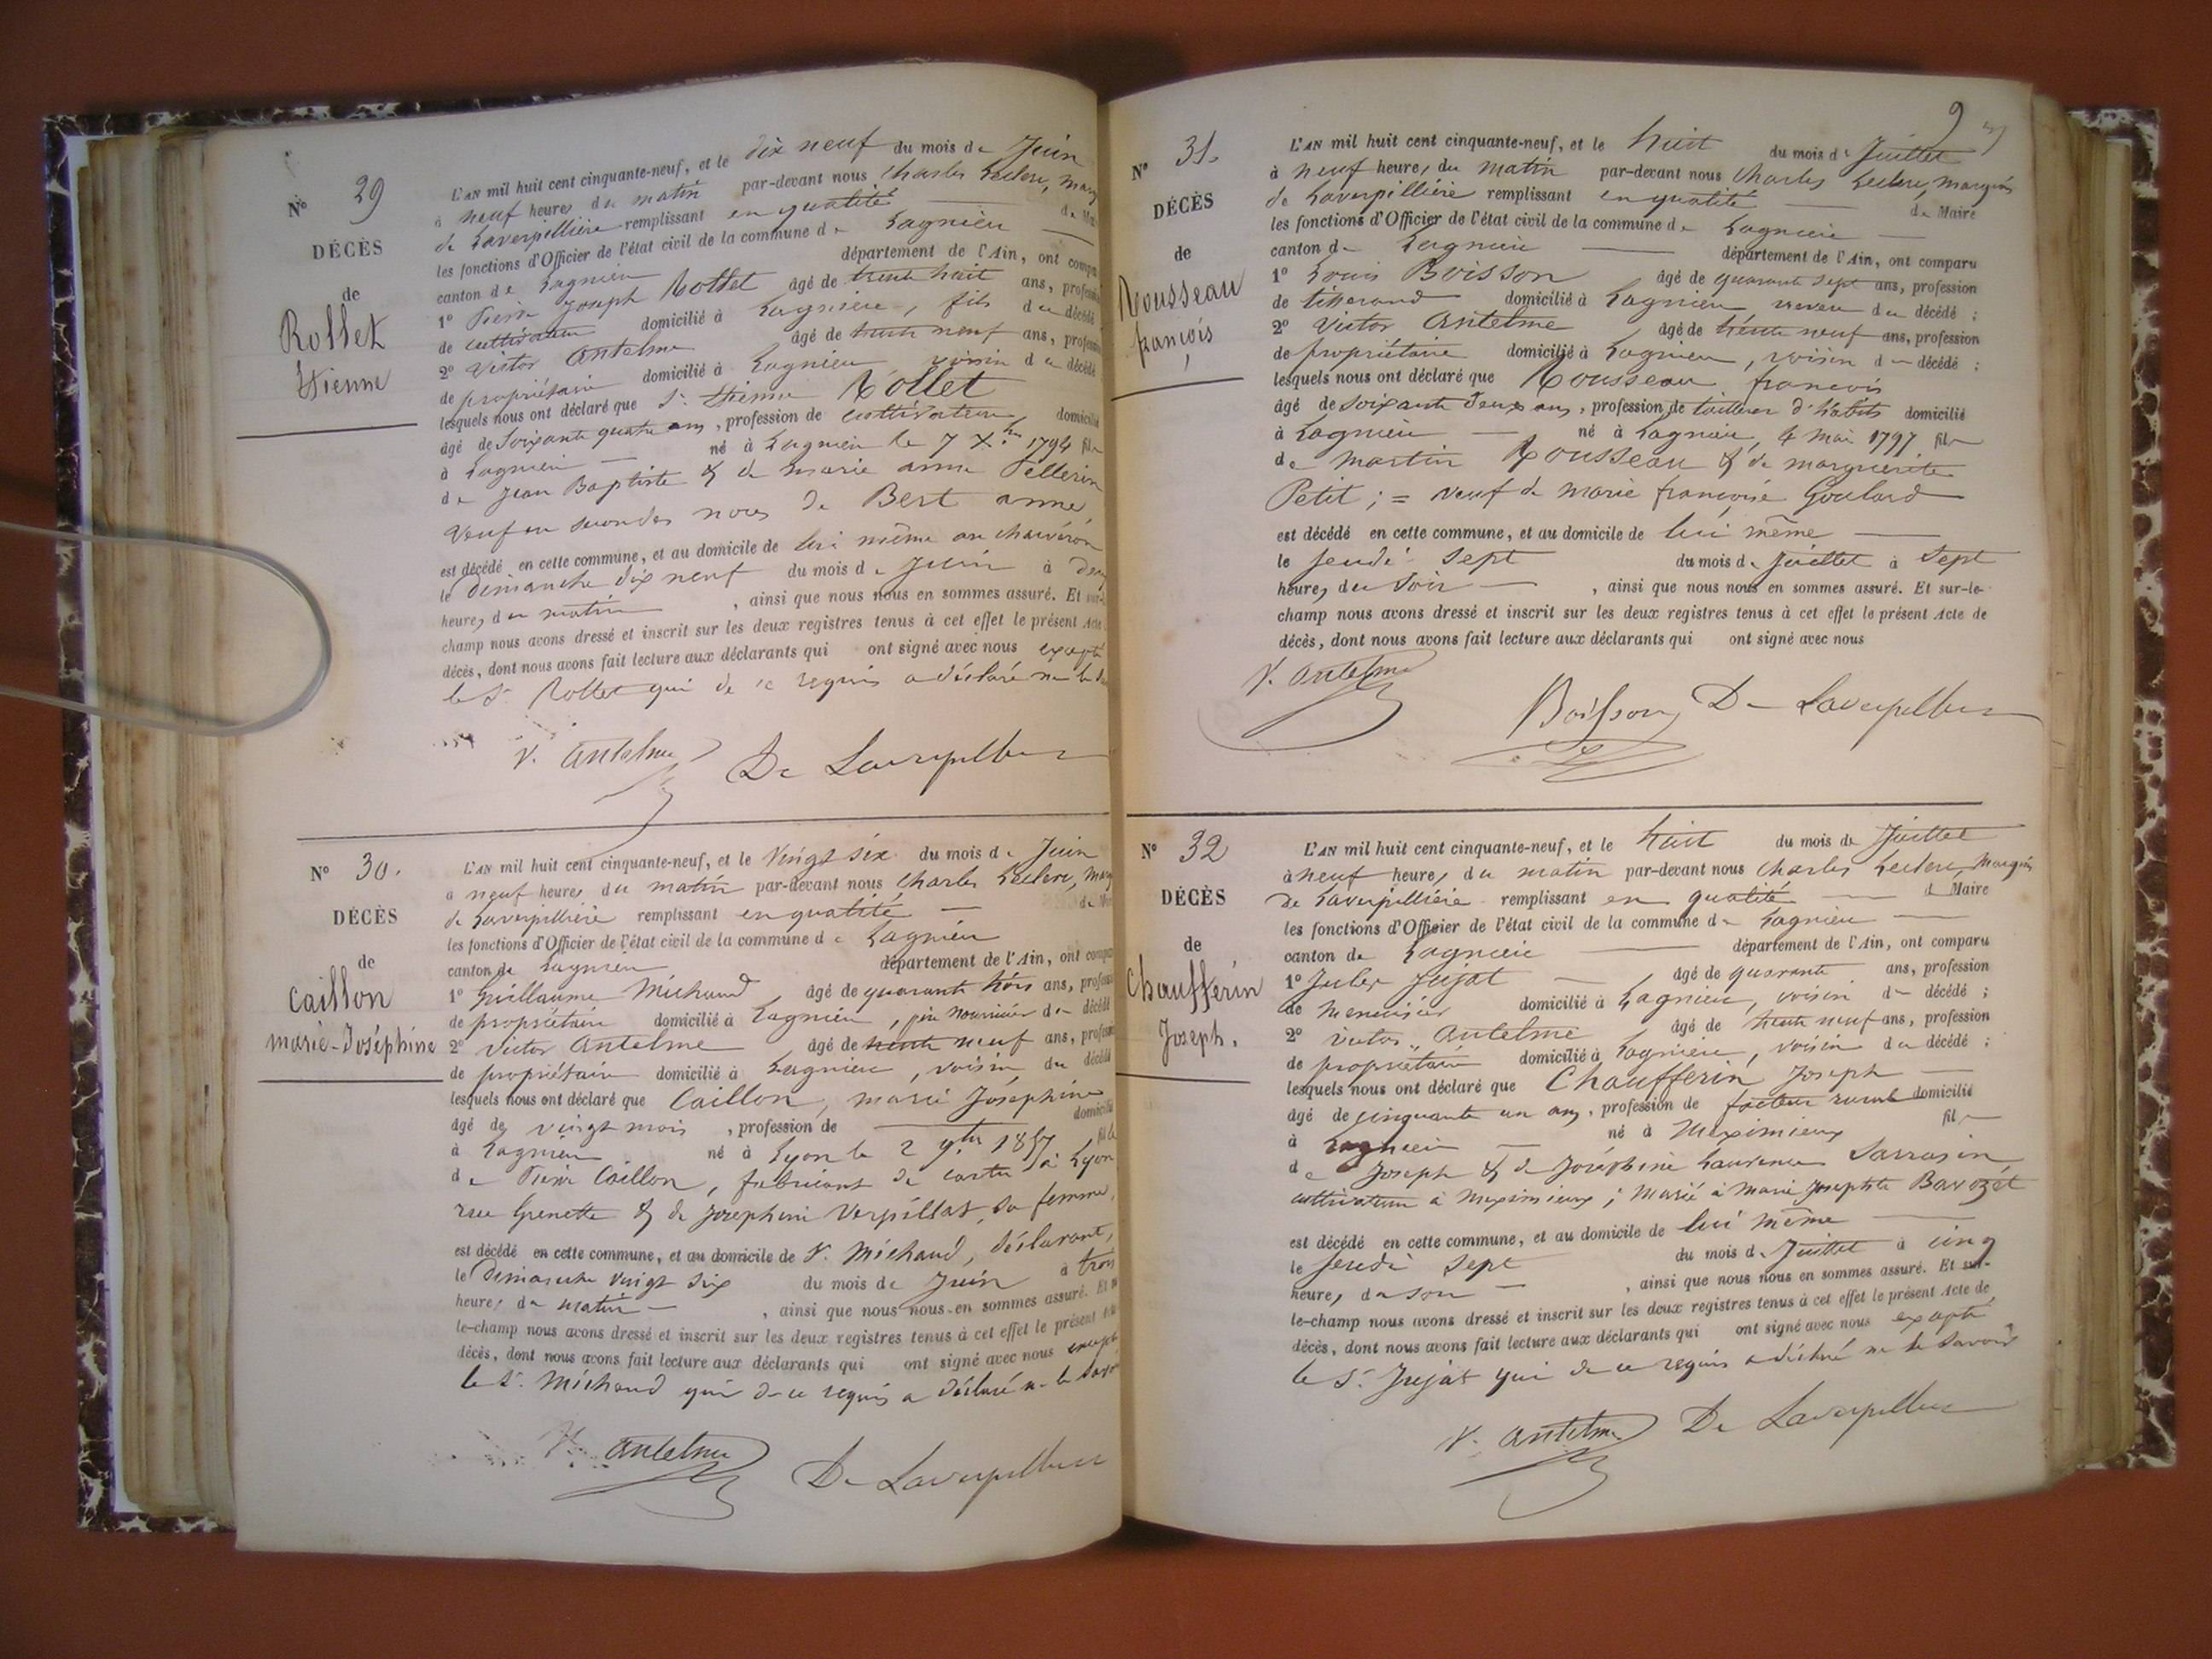 N° 29
DÉCÈS
de
Rollet
Etienne
L'AN mil huit cent cinquante-neuf, et le dix neuf du mois de Juin
à neuf heures du matin par-devant nous Charles Leclerc, marq
de Laverpillière remplissant en qualité de Ma
les fonctions d'Officier de l'état civil de la commune de Lagnieu
canton de Lagnieu département de l'Ain, ont compa
1° Pierre Joseph Rollet âgé de trente huit ans, professi
de cultivateur domicilié à Lagnieu, fils du décédé
2° Victor Antelme âgé de trente neuf ans, professi
de propriétaire domicilié à Lagnieu voisin du décédé
lesquels nous ont déclaré que Sr. Etienne Rollet
âgé de Soixante quatre ans, profession de cultivateur domicilié
à Lagnieu né à Lagnieu le 7 Xbre 1794 fils
de Jean Baptiste & de marie anne Pellerin
Veuf en secondes noces de Bert anne
est décédé en cette commune, et au domicile de lui même au
le Dimanche dix neuf du mois de Juin à deux
heures du matin, ainsi que nous nous en sommes assuré. Et sur-le
champ nous avons dressé et inscrit sur les deux registres tenus à cet effet le présent Acte
décès, dont nous avons fait lecture aux déclarants qui ont signé avec nous excepté
le Sr. Rollet qui de ce requis a déclaré ne le
V. Antelme De Laverpilliere
N° 30.
DÉCÈS
de
Caillon
marie-Joséphine
L'AN mil huit cent cinquante-neuf, et le Vingt six du mois de Juin
à neuf heures du matin par-devant nous Charles Leclerc, marq
de Laverpillière remplissant en qualité de
les fonctions d'Officier de l'état civil de la commune de Lagnieu
canton de Lagnieu département de l'Ain, ont compa
1° Guillaume Michaud âgé de quarante trois ans, professi
de propriétaire domicilié à Lagnieu, père nourricier de décédé
2° Victor Antelme âgé de trente neuf ans, professi
de propriétaire domicilié à Lagnieu, voisin du décédé
lesquels nous ont déclaré que Caillon, marie Joséphine
âgé de vingt mois, profession de domicilié
à Lagnieu né à Lyon le 2 9bre 1857 fille
de Pierre Caillon, fabricant de cartes à Lyon
rue Grenette & de Josephine Verpillat, sa femme,
est décédé en cette commune, et au domicile de Sr. Michaud, déclarant,
le Dimanche vingt six du mois de Juin à trois
heures du matin, ainsi que nous nous en sommes assuré. Et
le-champ nous avons dressé et inscrit sur les deux registres tenus à cet effet le présent
décès, dont nous avons fait lecture aux déclarants qui ont signé avec nous excepté
le Sr. Michaud qui de ce requis a déclaré ne le savoir
V. Antelme De Laverpilliere
9
N° 31.
DÉCÈS
de
Rousseau
françois
L'AN mil huit cent cinquante-neuf, et le huit du mois de Juillet
à neuf heures du matin par-devant nous Charles Leclerc, Marquis
de Laverpillière remplissant en qualité de Maire
les fonctions d'Officier de l'état civil de la commune de Lagnieu
canton de Lagnieu département de l'Ain, ont comparu
1° Louis Boisson, âgé de quarante sept ans, profession
de tisserand domicilié à Lagnieu neveu du décédé ;
2° Victor Antelme, âgé de trente neuf ans, profession
de propriétaire domicilié à Lagnieu, voisin du décédé ;
lesquels nous ont déclaré que Rousseau françois
âgé de soixante deux ans, profession de tailleur d'habits domicilié
à Lagnieu né à Lagnieu, 4 mai 1797 fils
de Martin Rousseau & de marguerite
Petit ; = veuf de marie françoise Goulard
est décédé en cette commune, et au domicile de lui même
le Jeudi Sept du mois de Juillet à Sept
heures du soir, ainsi que nous nous en sommes assuré. Et sur-le-
champ nous avons dressé et inscrit sur les deux registres tenus à cet effet le présent Acte de
décès, dont nous avons fait lecture aux déclarants qui ont signé avec nous
V. Antelme
Boisson De Laverpilliere
N° 32
DÉCÈS
de
Chaufferin
Joseph.
L'AN mil huit cent cinquante-neuf, et le huit du mois de Juillet
à neuf heures du matin par-devant nous Charles Leclerc, Marquis
De Laverpillière remplissant en qualité d Maire
les fonctions d'Officier de l'état civil de la commune de Lagnieu
canton de Lagnieu département de l'Ain, ont comparu
1° Jules Jujat, âgé de quarante ans, profession
de Menuisier domicilié à Lagnieu, voisin du décédé ;
2° Victor Antelme, âgé de trente neuf ans, profession
de propriétaire domicilié à Lagnieu, voisin du décédé ;
lesquels nous ont déclaré que Chaufferin Joseph
âgé de cinquante un ans, profession de facteur rural domicilié
à Lagnieu né à Meximieux fils
de Joseph & de Joséphine Laurence Sarrasin
cultivateurs à Meximieux ; Marié à Marie Josephte Bavozet
est décédé en cette commune, et au domicile de lui même
le Jeudi Sept du mois de Juillet à cinq
heures du soir, ainsi que nous nous en sommes assuré. Et sur-
le-champ nous avons dressé et inscrit sur les deux registres tenus à cet effet le présent Acte de
décès, dont nous avons fait lecture aux déclarants qui ont signé avec nous excepté
le Sr. Jujat qui de ce requis a déclaré ne le savoir
V. Antelme De Laverpilliere